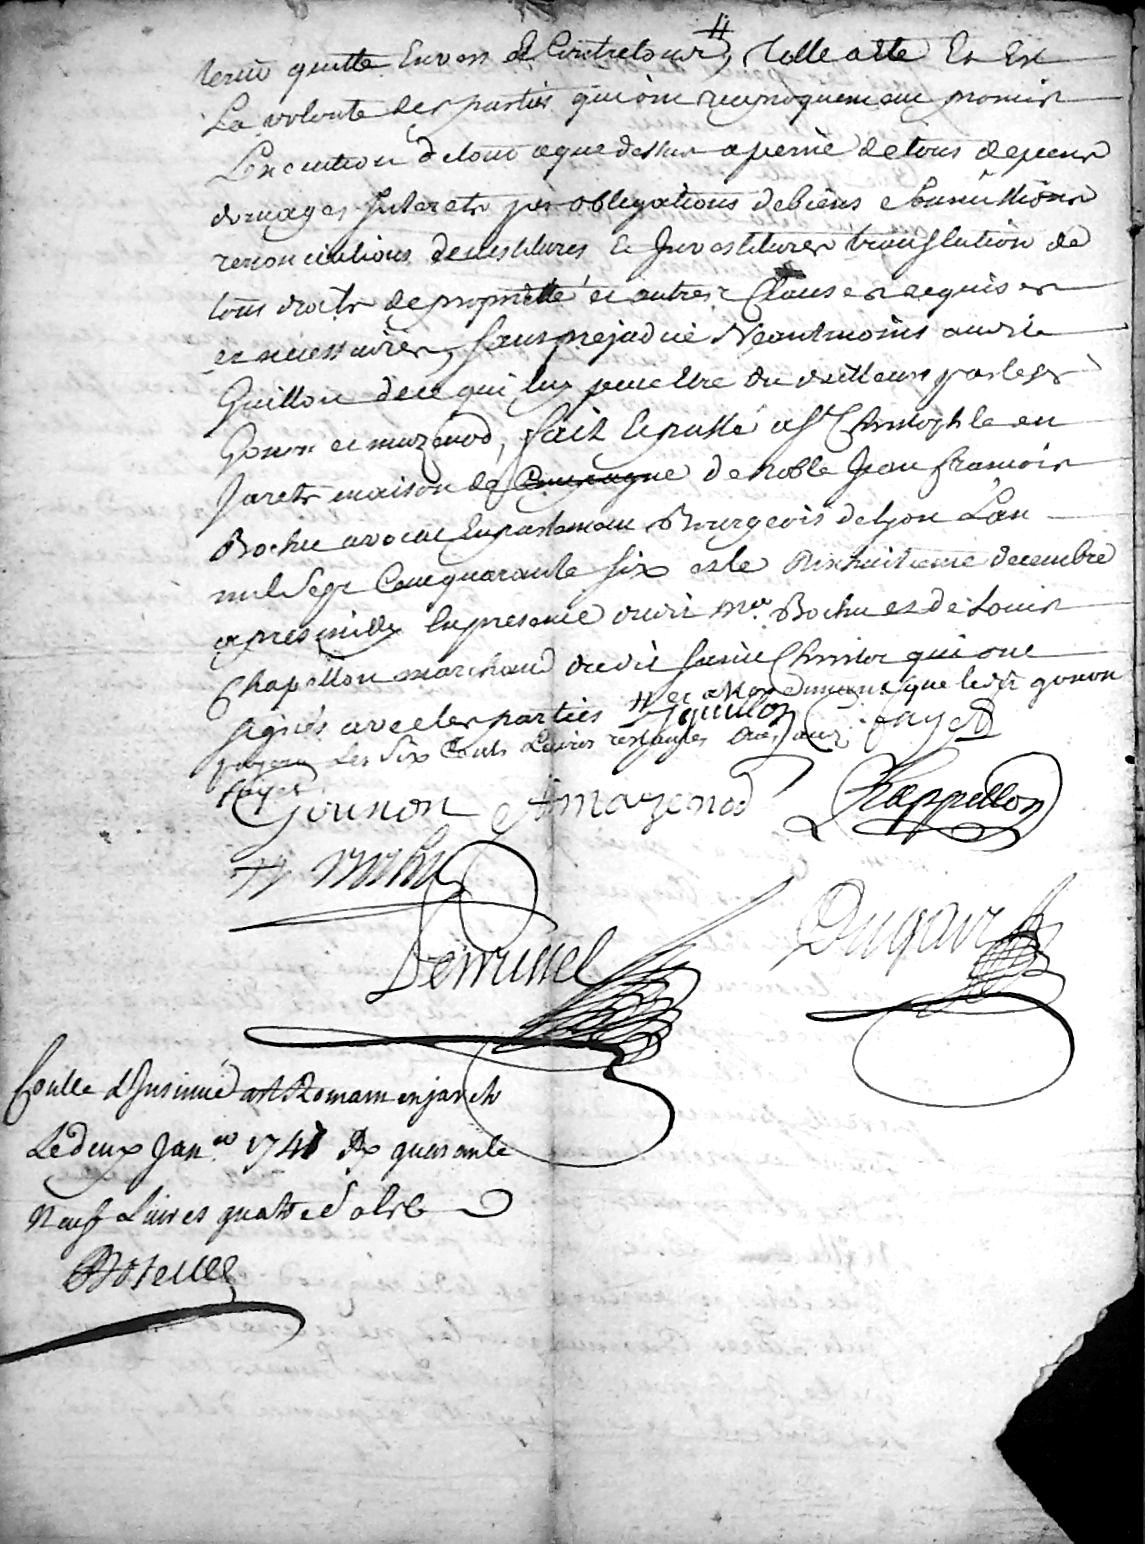 tenu quitte Envers et Contre tous, # telle a été Et Est
La volonté des parties qui ont reciproquement promis
L'execution de tout ce que dessus a peine de tous depens
domages Interets par obligations de biens soumissions
renonciations devestitures et Investitures translation de
tous droits de proprietté et autres Clauses requises
et necessaires, sans prejudice Neantmoins audit
Guillon de ce qui luy peut etre du d'ailleurs par lesds
Gonon et mazenod, fait et passé a St Christophle en
Jarets maison de Campagne de noble Jean francois
Bochu avocat en parlement Bourgeois de Lyon L'an
mil Sept Cent quarante six et le dixhuitieme decembre
apres midy En presence dudit Mr. Bochu et de Louis
Chapellon marchand dudit Saint Christo qui ont
signés avec les parties # et que ledit gonon
payera Les Six Cents Livres restantes
fayet
Guillon fayet
Gounon Mazenod Chappellon
# Bochu
Dugair
Controllé & Insinué a St Romain en jarets
Le deux Janer 1747 Rx quarante
Neuf Livres quatre Sols